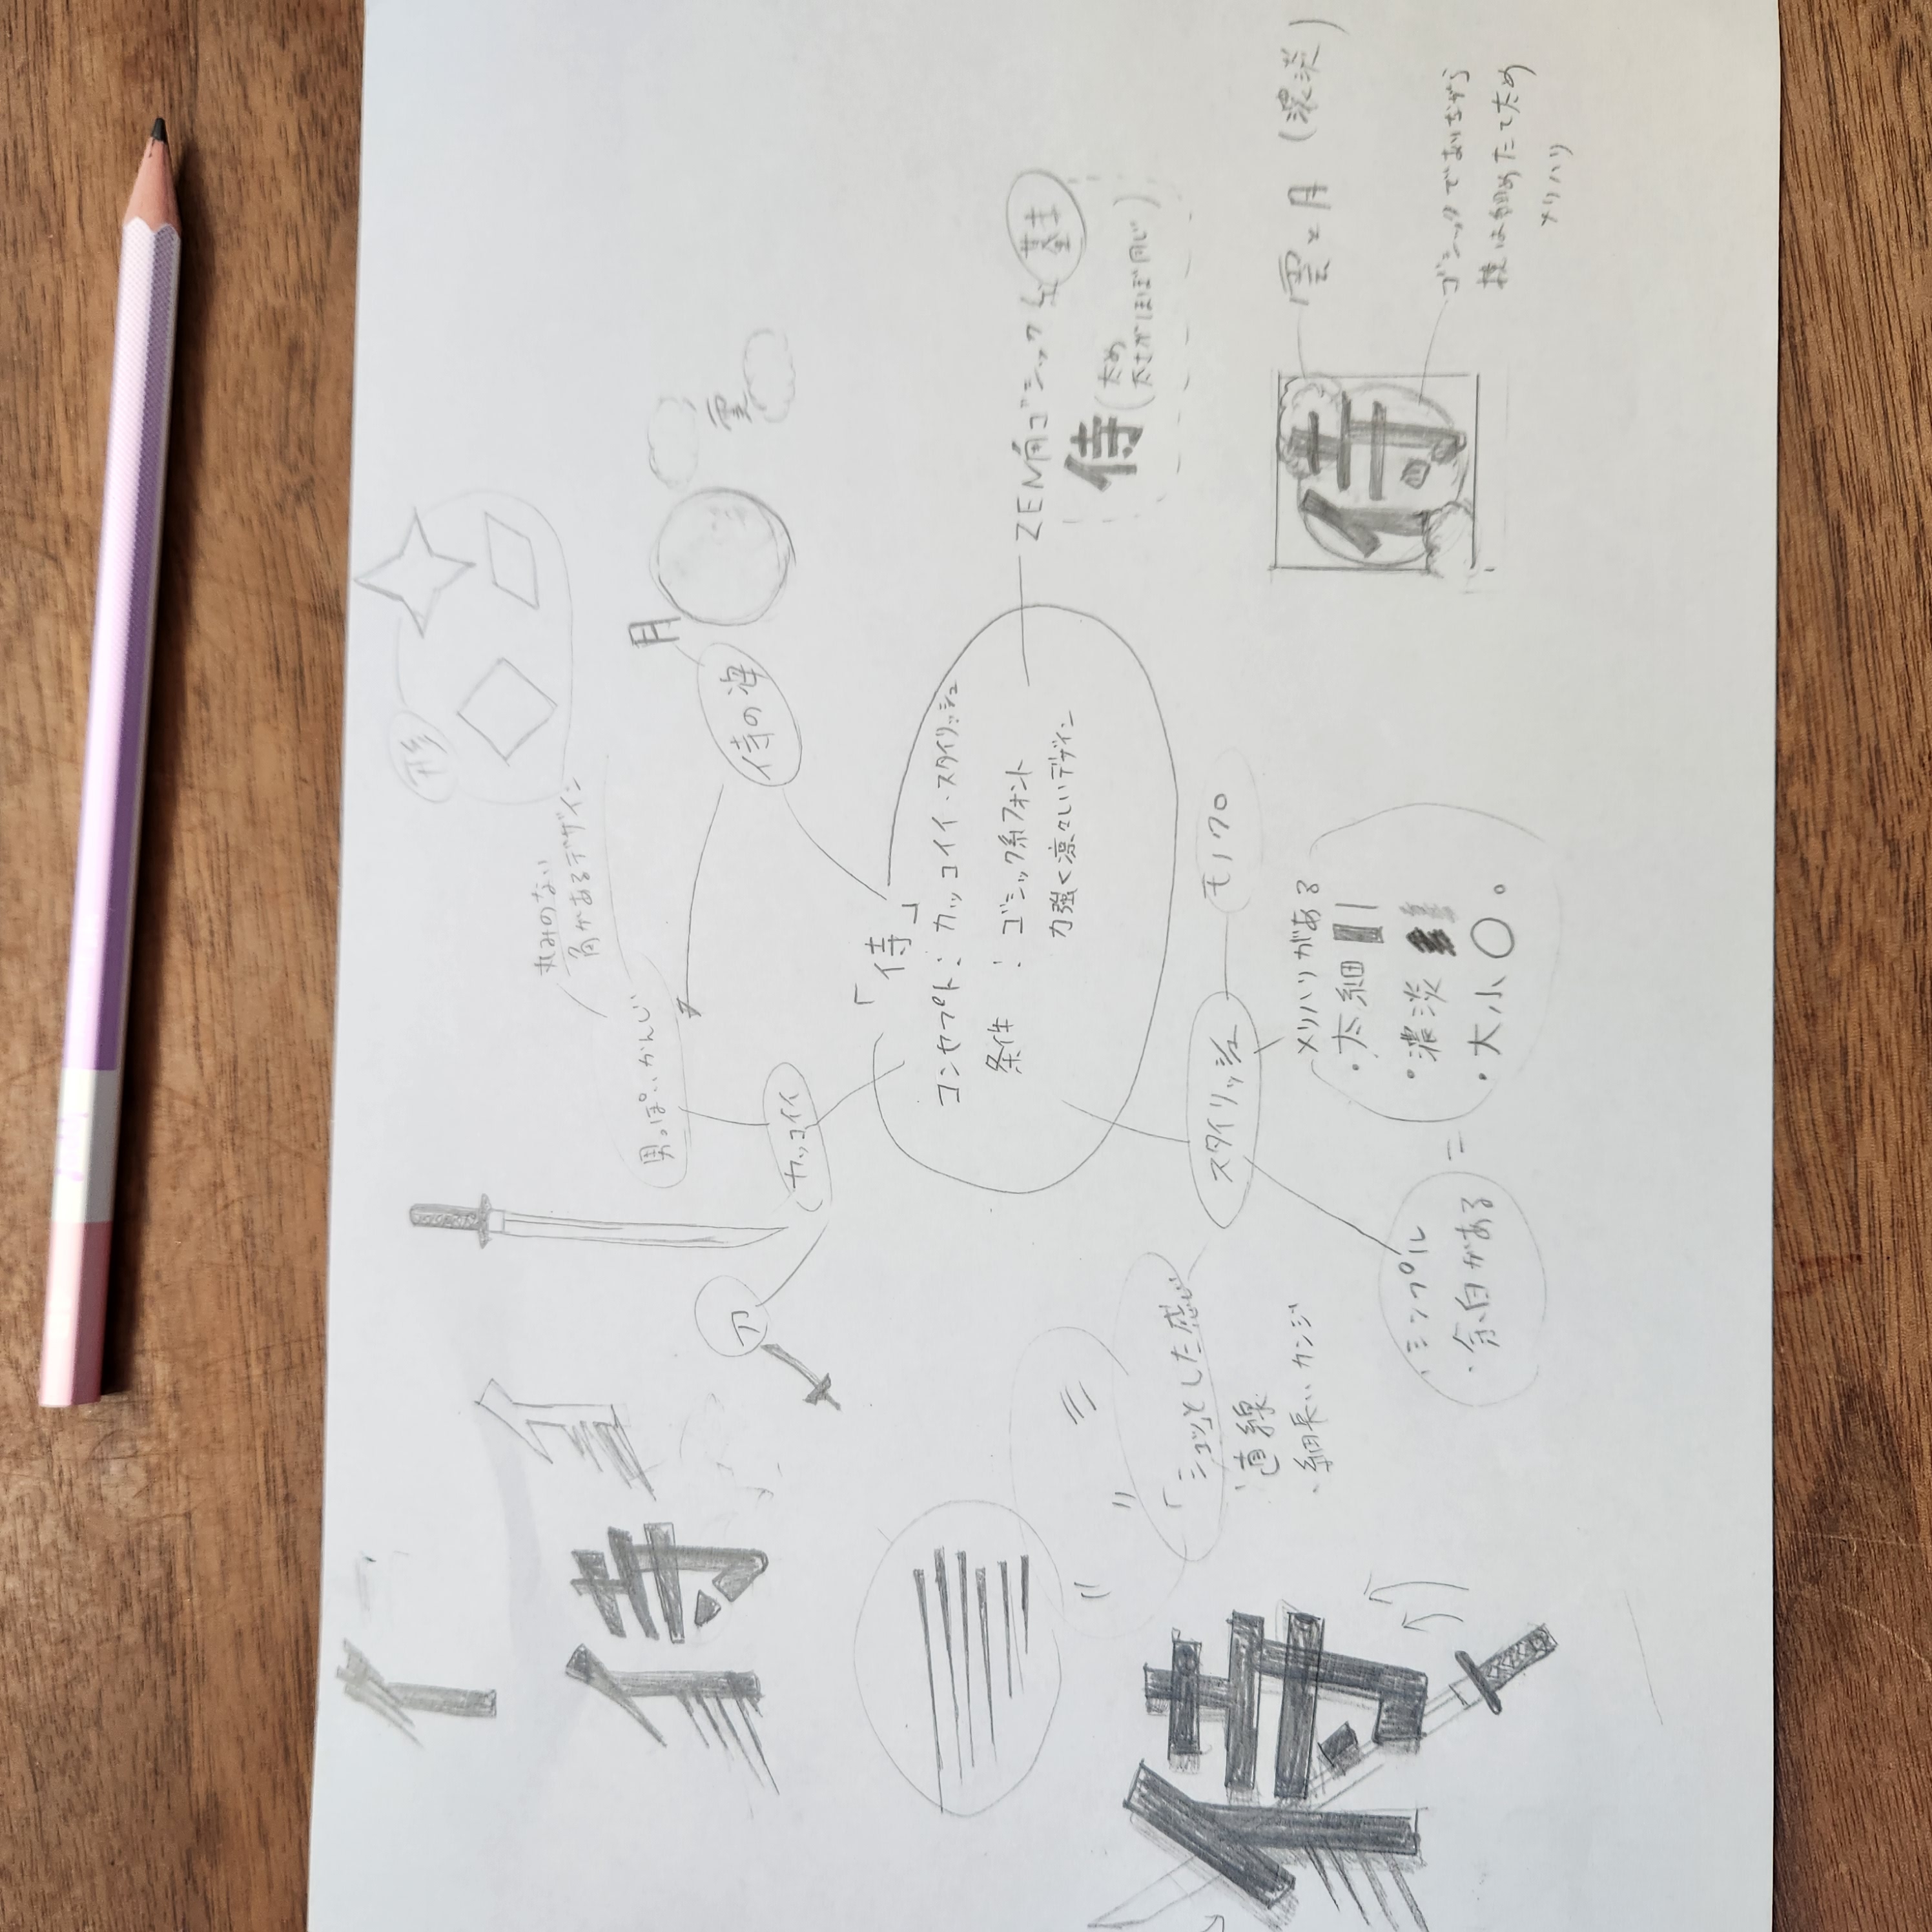 イ
イ
侍
形
丸みのない
角があるデザイン
男っぽいかんじ
月
雲
刀
カッコイイ
侍の海
「侍」
コンセプト：カッコイイ・スタイリッシュ
条件：ゴシック系フォント
力強く凛々しいデザイン
ZEN角ゴシック
基本
侍（太め
太さがほぼ同じ）
侍
「シュッ」とした感じ
・直線
・細長いカンジ
スタイリッシュ
モノクロ
メリハリがある
・太細
・濃淡
・大小
・シンプル
・余白がある
=
侍
雲と月（濃淡）
ゴシックでありながら
横は細めたて太め
メリハリ